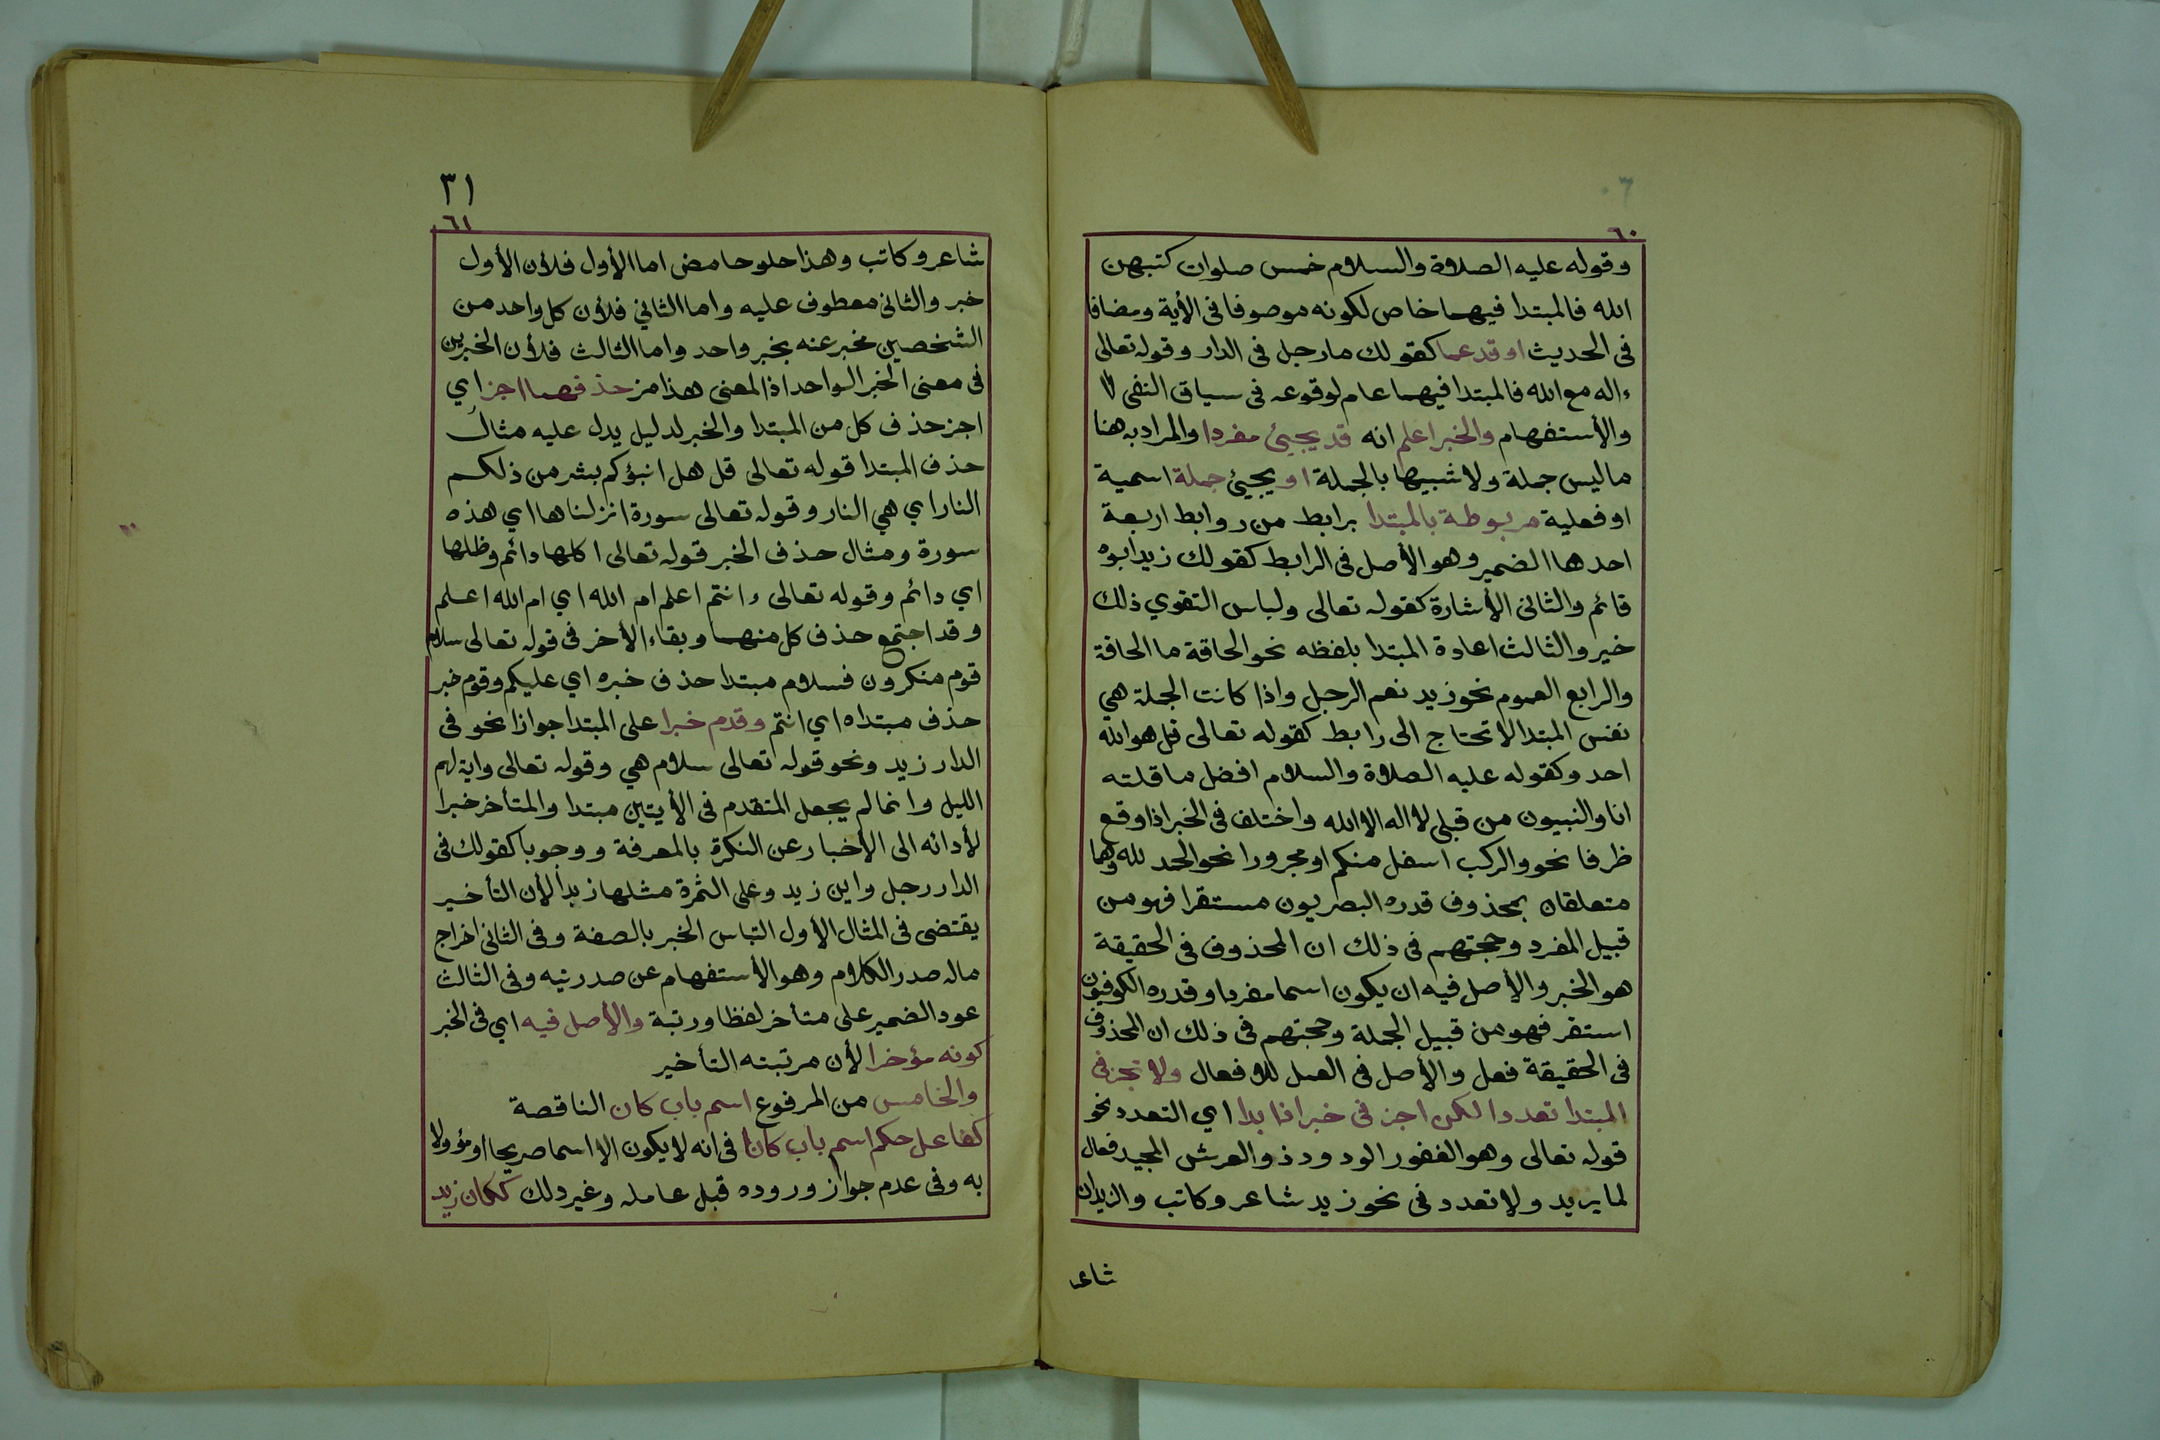 ٦٠
وقوله عليه الصلاة والسلام خمس صلوات كتبهن
الله فالمبتدا فيهما خاص لكونه موصوفا فى الأية ومضافا
فى الحديث او قد عما كقولك مارجل فى الدار وقوله تعالى
ءاله مع الله فالمبتدا فيهما عام لوقوعه فى سياق النفى
والأستفهام والخبر اعلم انه قد يجيئ مفردا والمراد به هنا
ماليس جملة ولا شبيها بالجملة او يجيئ جملة اسمية
او فعلية مربوطة بالمبتدا برابط من روابط اربعة
احدها الضمير وهو الأصل فى الرابط كقولك زيد ابوه
قائم والثانى الأشارة كقوله تعالى ولباس التقوي ذلك
خير والثالث اعادة المبتدا بلفظه نحو الحاقة ما الحاقة
والرابع العموم نحو زيد نعم الرجل واذا كانت الجملة هي
نفس المبتدا لا تحتاج الى رابط كقوله تعالى قل هو الله
احد وكقوله عليه الصلاة والسلام افضل ما قلته
انا والنبيون من قبلى لا اله الا الله واختلف فى الخبر اذا وقع
ظرفا نحو والركب اسفل منكم او مجرورا نحو الحمد لله وهما
متعلقان بمحذوف قدره البصريون مستقرا فهو من
قبيل المفرد وحجتهم فى ذلك ان المحذوف فى الحقيقة
هو الخبر والأصل فيه ان يكون اسما مفردا وقدره الكوفيون
استقر فهو من قبيل الجملة وحجتهم فى ذلك ان المحذوف
فى الحقيقة فعل والأصل فى العمل للافعال ولا تجز فى
المبتدا تعددا لكن اجز فى خبر اذا بدا اي التعدد نحو
قوله تعالى وهو الغفور الودود ذو العرش المجيد فعال
لما يريد ولا تعدد فى نحو زيد شاعر وكاتب والزيدان
شاعر
٣١
٦١
شاعر وكاتب وهذا حلو حامض اما الأول فلأن الأول
خبر والثانى معطوف عليه واما الثاني فلأن كل واحد من
الشخصين مخبر عنه بخبر واحد واما الثالث فلأن الخبرين
فى معنى الخبر الواحد اذ المعنى هذا مز حذفهما اجز اي
اجز حذف كل من المبتدا والخبر لدليل يدل عليه مثال
حذف المبتدا قوله تعالى قل هل انبؤكم بشر من ذلكم
النار اي هي النار وقوله تعالى سورة انزلناها اي هذه
سورة ومثال حذف الخبر قوله تعالى اكلها دائم وظلها
اي دائم وقوله تعالى ءانتم اعلم ام الله اي ام الله اعلم
وقد اجتمع حذف كل منهما وبقاء الأخر فى قوله تعالى سلام
قوم منكرون فسلام مبتدا حذف خبره اي عليكم وقوم خبر
حذف مبتداه اي انتم وقدم خبرا على المبتدا جوازا نحو فى
الدار زيد ونحو قوله تعالى سلام هي وقوله تعالى واية لهم
الليل وانما لم يجعل المتقدم فى الأيتين مبتدا والمتأخر خبرا
لأدائه الى الأخبار عن النكرة بالمعرفة ووجوبا كقولك فى
الدار رجل واين زيد وعلى الثمرة مثلها زبداً لأن التأخير
يقتضى فى المثال الأول التباس الخبر بالصفة وفى الثانى اخراج
ماله صدر الكلام وهو الأستفهام عن صدريته وفى الثالث
عود الضمير على متأخر لفظا ورتبة والأصل فيه اي فى الخبر
كونه مؤخرا لأن مرتبته التأخير
والخامس من المرفوع اسم باب كان الناقصة
كفاعل حكم اسم باب كانا فى انه لا يكون الا اسما صريحا او مؤولا
به وفى عدم جواز وروده قبل عامله وغير ذلك ككان زيد